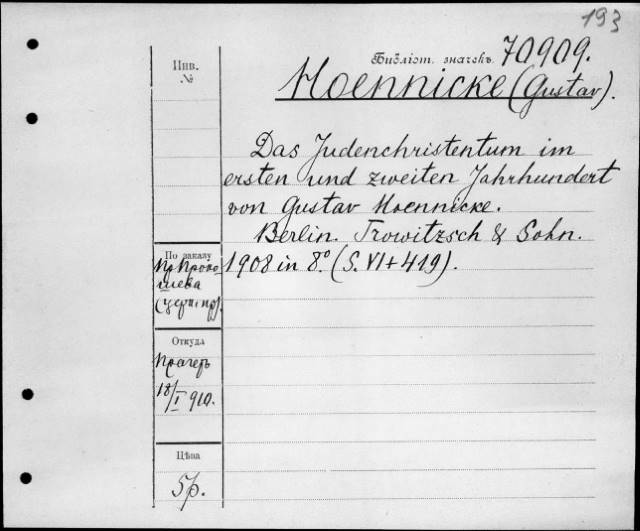 193
Библіот. значекъ 70909.
Инв.
№
Hoennicke (Gustav).
Das Judenchristentum im
ersten und zweiten Jahrhundert
von Gustav Hoennicke.
Berlin. Trowitzsch & Sohn.
1908 in 8.° (S. VI + 419).
По заказу
Откуда
Прагеръ
18/I 910.
Цѣна
5р.